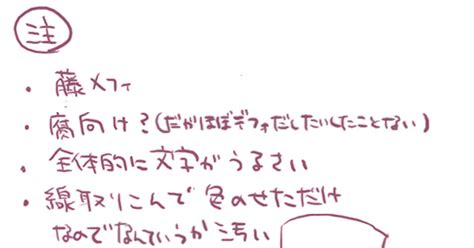 注
・藤メフィ
・腐向け?(だがほぼデフォだしたいしたことない)
・全体的に文字がうるさい
・線取りこんで色のせただけ
なのでなんていうか汚い